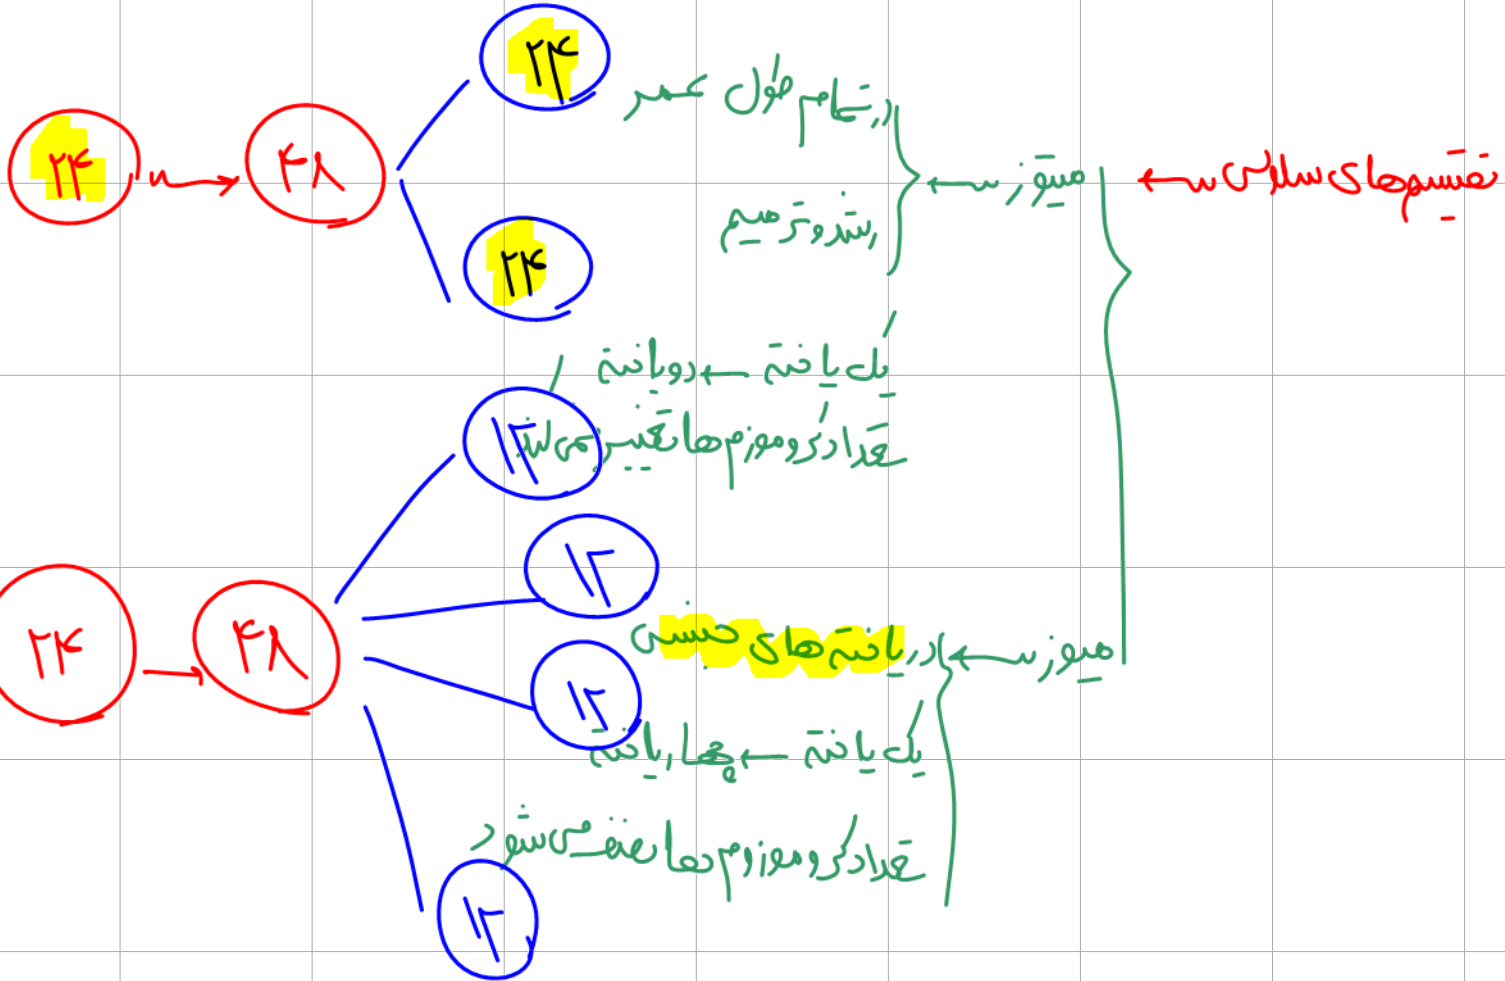 تقسیم‌های سلولی ←
میتوز ←
در تمام طول عمر
رشد و ترمیم
یک یاخته ← دو یاخته
تعداد کروموزم‌ها تغییر نمی‌کند
۲۴ → ۴۸
۲۴
۲۴
میوز ←
در یاخته‌های جنسی
یک یاخته ← چهار یاخته
تعداد کروموزوم‌ها نصف می‌شود
۲۴ → ۴۸
۱۲
۱۲
۱۲
۱۲